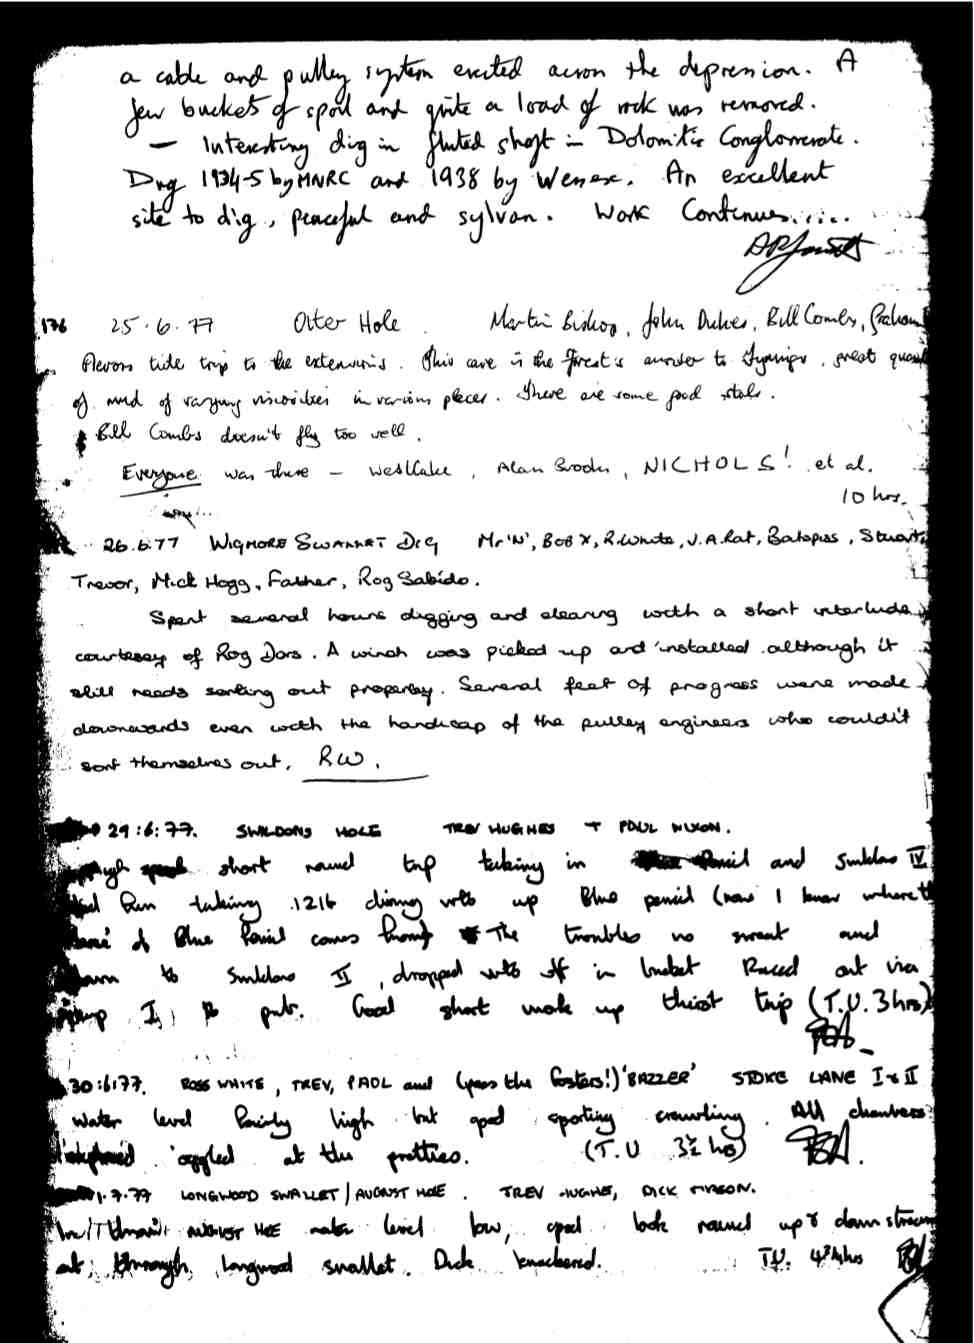 a cable and pulley system erected across the depression. A
few buckets of spoil and quite a load of rock was removed.
— Interesting dig in fluted shaft in Dolomitic Conglomerate.
Dug 1934-5 by MNRC and 1938 by Wessex. An excellent
site to dig, peaceful and sylvan. Work Continues.....
176 25.6.77 Otter Hole. Martin Bishop, John Dukes, Bill Combs, Graham
tide trip to the extensions. This cave is the Forest's answer to
of mud of varying viscosities in various places. There are some good stals.
Bill Combs doesn't fly too well.
Everyone was there – Westlake, Alan , NICHOLS! et al.
10 hrs.
26.6.77 WIGMORE SWALLET DIG Mr 'N', BOB X, R.White, J.A.Rat, Batspiss, Stuart,
Trevor, Mick Hogg, Father, Rog Sabido.
Spent several hours digging and clearing with a short interlude
courtesey of Rog Dors. A winch was picked up and installed although it
still needs sorting out properley. Several feet of progress were made
downwards even with the handicap of the pulley engineers who couldn't
sort themselves out. RW.
29:6:77. SWILDONS HOLE TREV HUGHES + PAUL NIXON.
short round trip taking in and Swildons IV
taking up Blue pencil (now I know where
of Blue Pencil comes from) The troubles no sweat and
to Swildons II, dropped off in Raced out via
I, to pub. Good short work up thirst trip (T.U. 3hrs)
30:6:77. ROSS WHITE, TREV, PAUL and (pass the Fosters!) 'BAZZER' STOKE LANE I & II
Water level fairly high but good sporting crawling. All chambers
oggled at the pretties. (T.U 3½ hrs)
1.7.77 LONGWOOD SWALLET/AUGUST HOLE. TREV HUGHES, DICK
AUGUST HOLE water level low, good look round up & down stream
out through Longwood swallet. Dick knackered. T.U. 4¾hrs